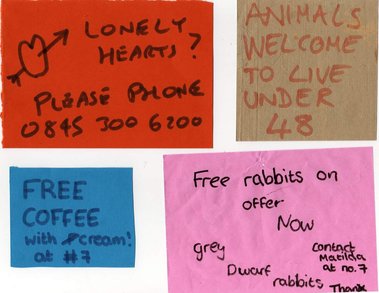 LONELY
HEARTS?
PLEASE PHONE
0845 300 6200
ANIMALS
WELCOME
TO LIVE
UNDER
48
FREE
COFFEE
with cream!
at #7
Free rabbits on
offer
Now
grey
Dwarf
rabbits
contact
Matilda
at no.7
Thank